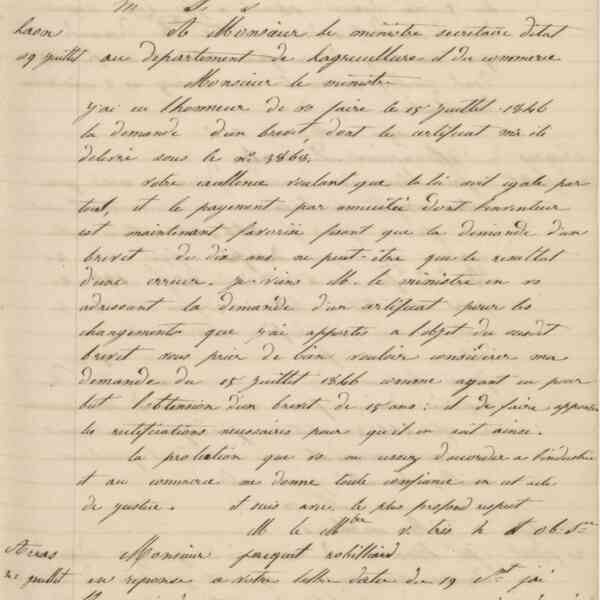 Laon A Monsieur le ministre secretaire d'etat
29 juillet au departement de lagriculture et du commerce
Monsieur le ministre
j'ai eu lhonneur de vs faire le 15 juillet 1846
la demande d'un brevet, dont le certificat m'a été
délivré sous le n° 3868.
votre excellence voulant que la loi soit egale par
tout, et le payement par annuitée dont linventeur
est maintenant favorisé fesant que la demande d'un
brevet de dix ans ne peut-être que le resultat
d'une erreur. je viens M. le ministre en vs
adressant la demande d'un certificat pour les
changements que j'ai apportes a l'objet du susdit
brevet vous prier de bien vouloir considérer ma
demande du 15 juillet 1846 comme ayant eu pour
but l'obtension d'un brevet de 15 ans : et de faire apporter
les rectifications necessaires pour qu'il en soit ainsi.
la protection que vs accordez a l'industrie
et au commerce me donne toute confiance en cet acte
de justice. et suis avec le plus profond respect
M le Mtre v. tres h et ob. Sr
Arras Monsieur jacquet robilliard
juillet en reponse a votre lettre datée du 19 St j'ai